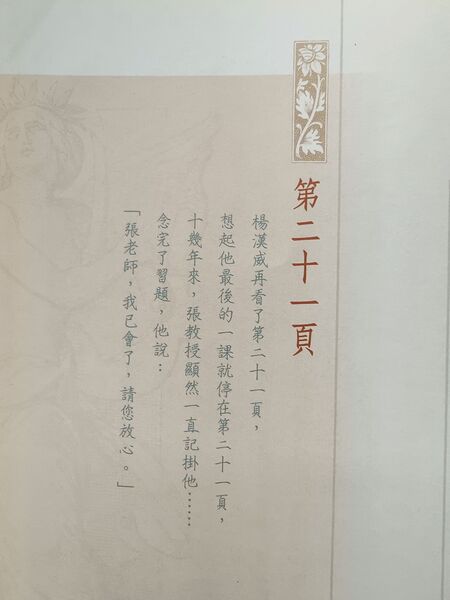 第二十一頁
楊漢威再看了第二十一頁，
想起他最後的一課就停在第二十一頁，
十幾年來，張教授顯然一直記掛他……
念完了習題，他說：
「張老師，我已會了，請您放心。」